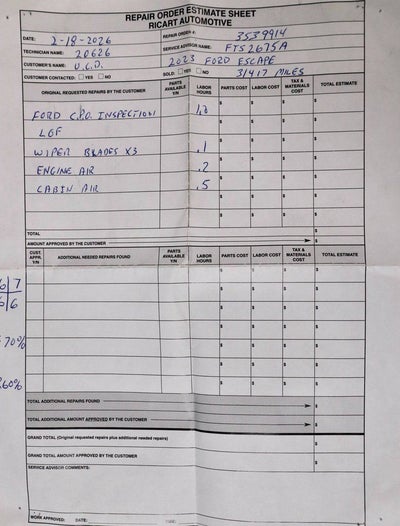 REPAIR ORDER ESTIMATE SHEET
RICART AUTOMOTIVE
DATE: 2-18-2026 REPAIR ORDER #: 3539914
TECHNICIAN NAME: 20626 SERVICE ADVISOR NAME: FTS2675A
CUSTOMER'S NAME: U.C.D. 2023 FORD ESCAPE
CUSTOMER CONTACTED: YES NO SOLD: YES NO 31417 MILES
ORIGINAL REQUESTED REPAIRS BY THE CUSTOMER PARTS AVAILABLE Y/N LABOR HOURS PARTS COST LABOR COST TAX & MATERIALS COST TOTAL ESTIMATE
FORD C.P.O. INSPECTION $ $ $ $
LOF $ $ $ $
WIPER BLADES X3 .1 $ $ $ $
ENGINE AIR .2 $ $ $ $
CABIN AIR .5 $ $ $ $
$ $ $ $
TOTAL $
AMOUNT APPROVED BY THE CUSTOMER $
CUST. APPR. Y/N ADDITIONAL NEEDED REPAIRS FOUND PARTS AVAILABLE Y/N LABOR HOURS PARTS COST LABOR COST TAX & MATERIALS COST TOTAL ESTIMATE
$ $ $ $
6|7 $ $ $ $
6|6 $ $ $ $
70% $ $ $ $
$ $ $ $
60% $ $ $ $
TOTAL ADDITIONAL REPAIRS FOUND $
TOTAL ADDITIONAL AMOUNT APPROVED BY THE CUSTOMER $
GRAND TOTAL (Original requested repairs plus additional needed repairs) $
GRAND TOTAL AMOUNT APPROVED BY THE CUSTOMER $
SERVICE ADVISOR COMMENTS:
WORK APPROVED: DATE: TIME: